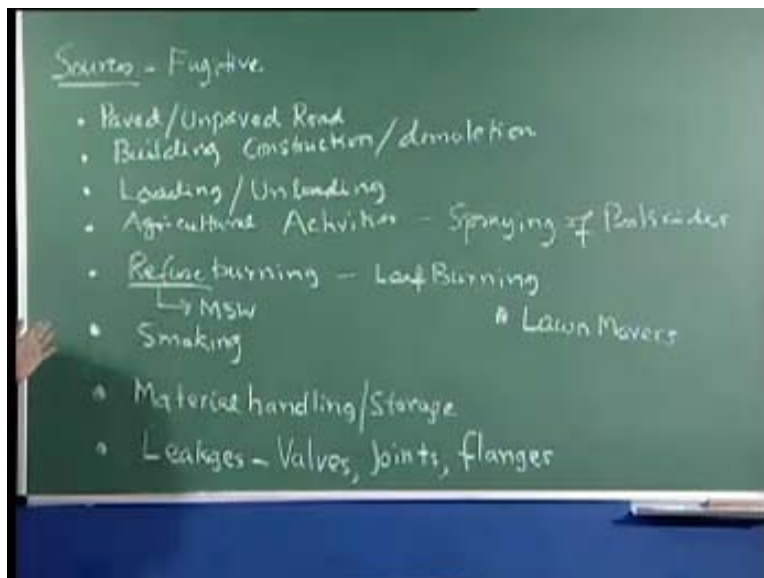 Sources - Fugitive
• Paved/Unpaved Road
• Building Construction/demoletion
• Loading/Unloading
• Agricultural Activities - Spraying of Pesticides
• Refuse burning - Leaf Burning
↳ MSW
• Lawn Movers
• Smoking
• Material handling/Storage
• Leakges - Valves, Joints, flanges